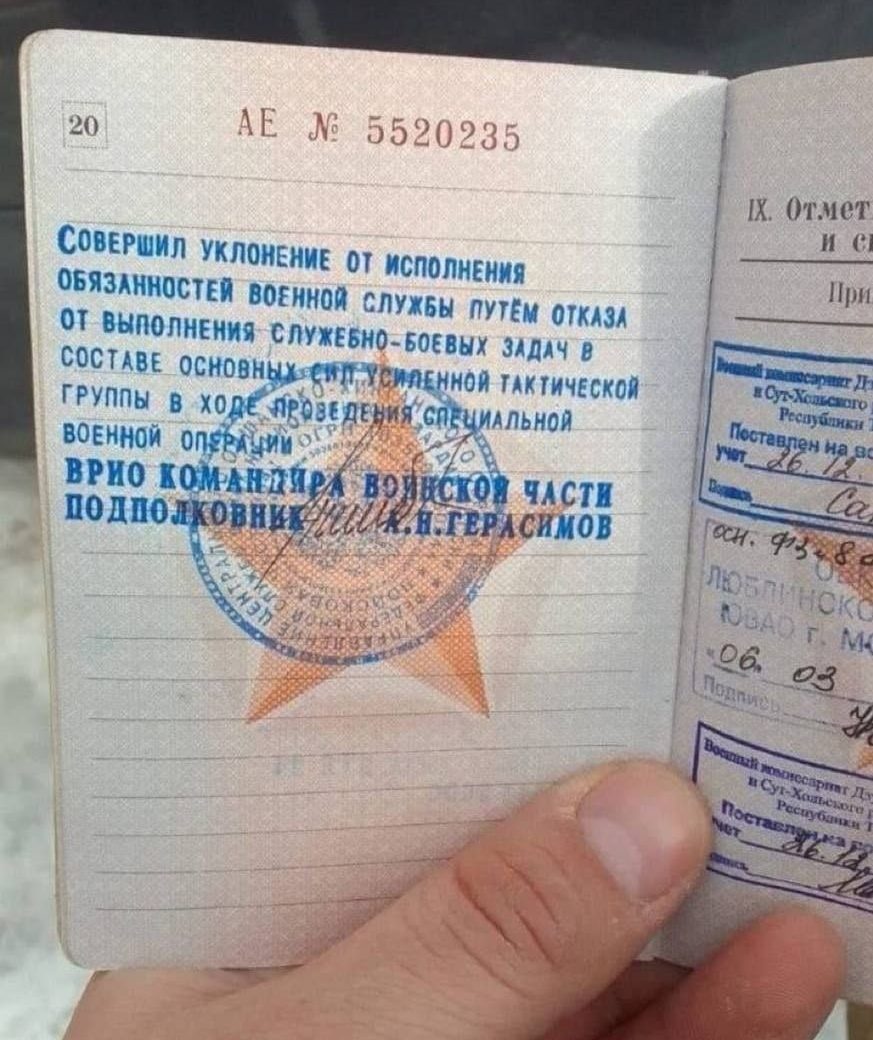 20
АЕ № 5520235
Совершил уклонение от исполнения
обязанностей военной службы путём отказа
от выполнения служебно-боевых задач в
составе основных сил усиленной тактической
группы в ходе проведения специальной
военной операции
ВРИО КОМАНДИРА ВОИНСКОЙ ЧАСТИ
ПОДПОЛКОВНИК А.Н.ГЕРАСИМОВ
IX. Отмет
и с
При
Военный комиссариат Дз
и Сут-Хольского р
Республики Т
Поставлен на во
учет 26.12.
Подпись
осн. ФЗ-8
ЛЮБЛИНСКО
ЮВАО г. М
"06. 03
Подпись
Военный комиссариат Дз
и Сут-Хольского р
Республики Т
Поставлен на
учет 26.12